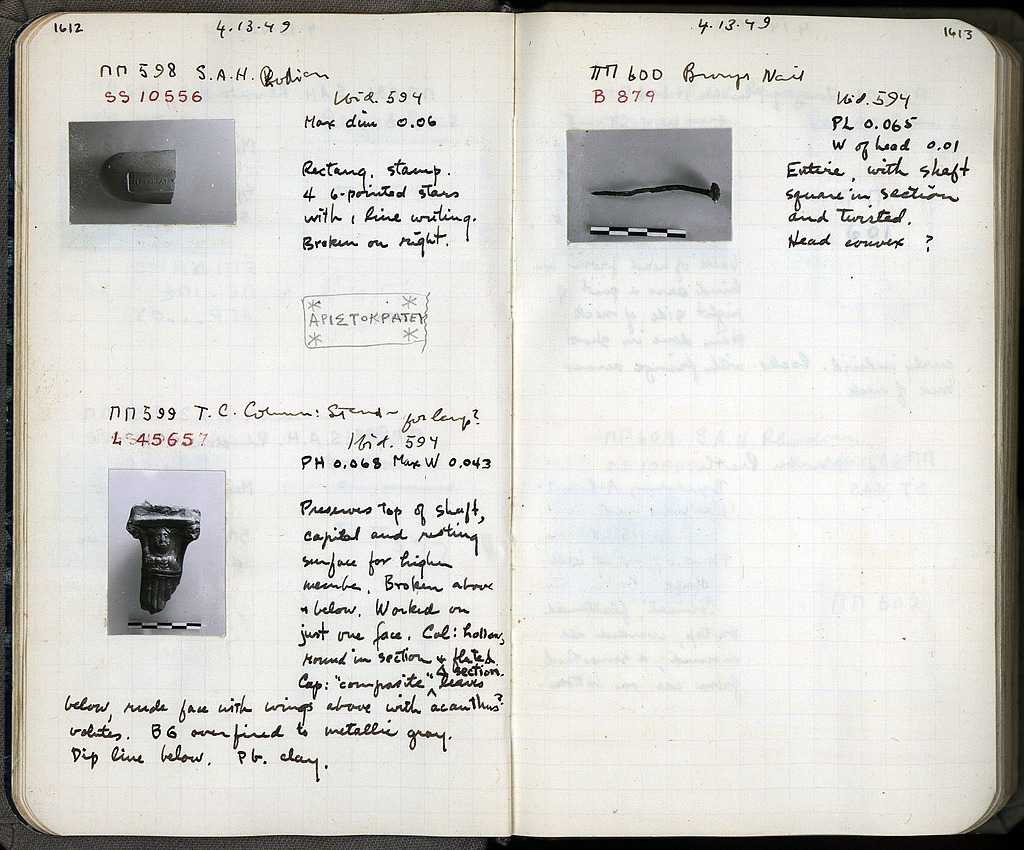 1612
4.13.49
ΠΠ 598 S.A.H. Rodian
SS 10556
Ibid. 594
Max dim 0.06
Rectang. stamp.
4 6-pointed stars
with 1 line writing.
Broken on right.
ΑΡΙΣΤΟΚΡΑΤΕΥ
ΠΠ 599 T.C. Column: Stand for lamp?
L 4565
Ibid. 594
PH 0.068 Max W 0.043
Preserves top of shaft,
capital and resting
surface for higher
member. Broken above
+ below. Worked on
just one face. Col: hollow,
round in section + fluted.
Cap: "composite" 4 section. leaves
below, nude face with wings above with acanthus?
volutes. BG overfired to metallic gray.
Dip line below. Pb. clay.
1613
4.13.49
ΠΠ 600 Bronze Nail
B 879
Ibid. 594
PL 0.065
W of head 0.01
Entire, with shaft
square in section
and twisted.
Head convex ?